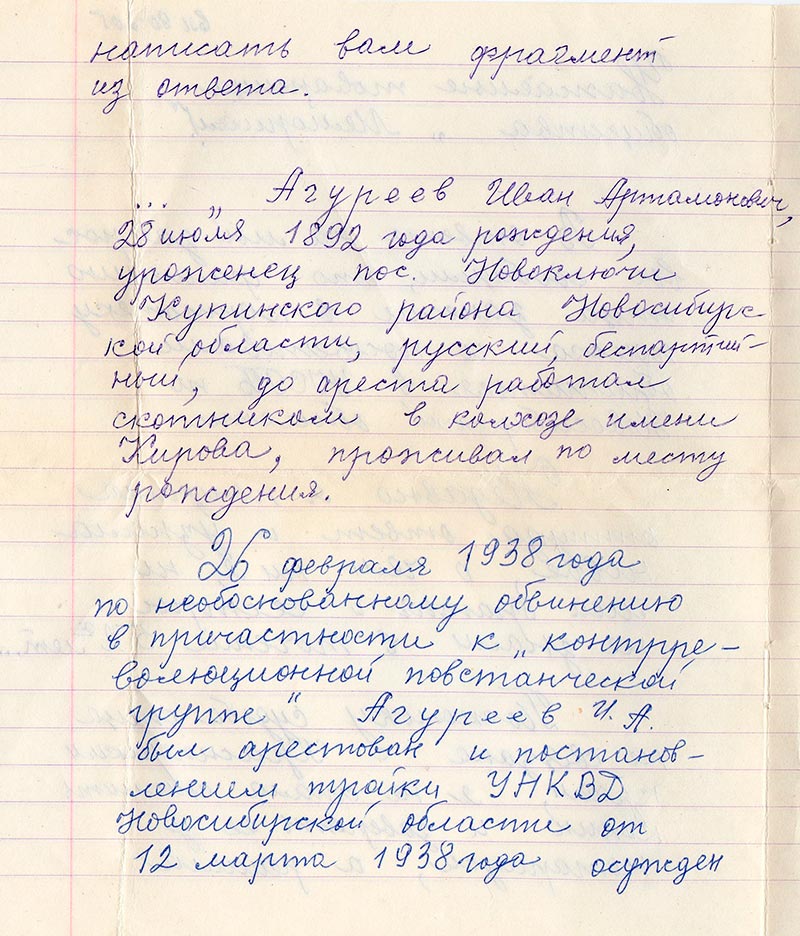 написать вам фрагмент
из ответа.
... „ Агуреев Иван Артамонович,
28 июля 1892 года рождения,
уроженец пос. Новоключи
Купинского района Новосибирс
кой области, русский, беспартий-
ный, до ареста работал
скотником в колхозе имени
Кирова, проживал по месту
рождения.
26 февраля 1938 года
по необоснованному обвинению
в причастности к „контрре-
волюционной повстанческой
группе" Агуреев И. А.
был арестован и постанов-
лением тройки УНКВД
Новосибирской области от
12 марта 1938 года осужден